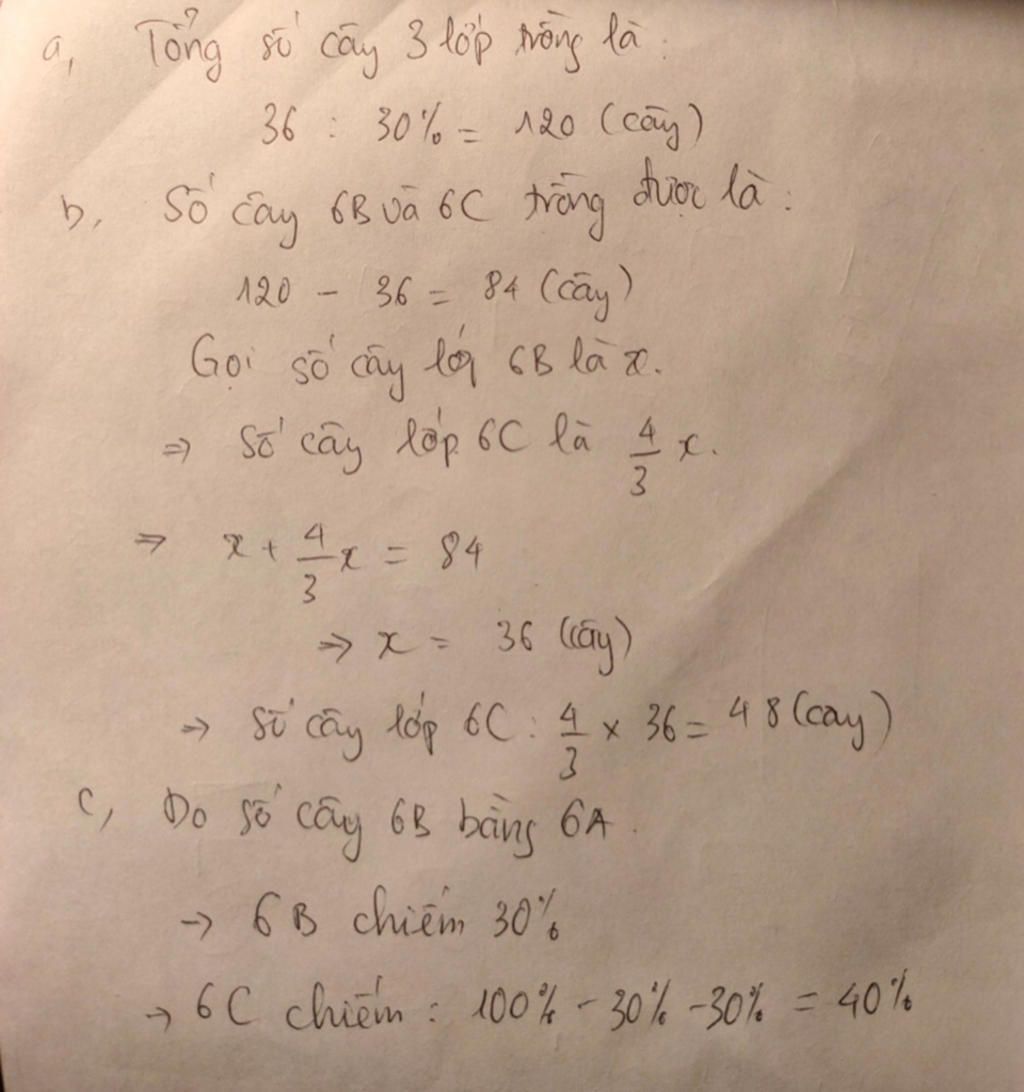 a, Tổng số cây 3 lớp trồng là:
36 : 30% = 120 (cây)
b, Số cây 6B và 6C trồng được là:
120 - 36 = 84 (cây)
Gọi số cây lớp 6B là x.
⇒ Số cây lớp 6C là 4/3 x.
⇒ x + 4/3 x = 84
⇒ x = 36 (cây)
⇒ Số cây lớp 6C : 4/3 × 36 = 48 (cay)
c, Do số cây 6B bằng 6A.
→ 6B chiếm 30%
→ 6C chiếm : 100% - 30% - 30% = 40%